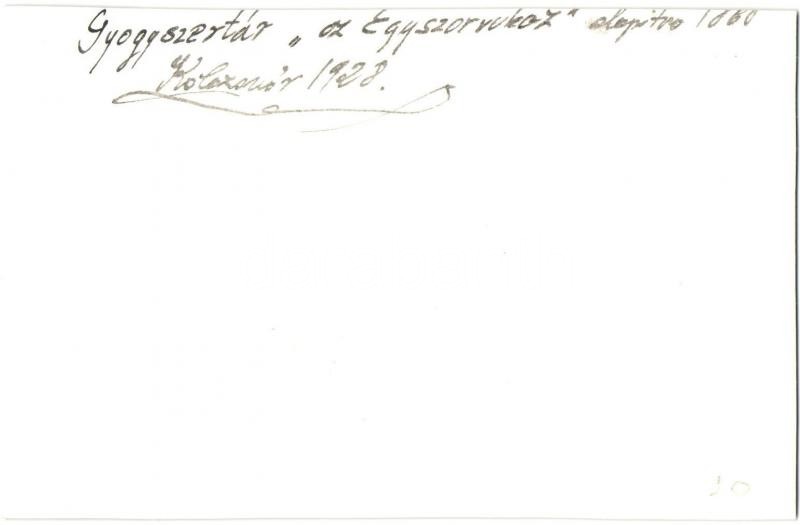 Gyógyszertár „az Egyszarvuhoz" alapitva 1860
Kolozsvár 1928.
30